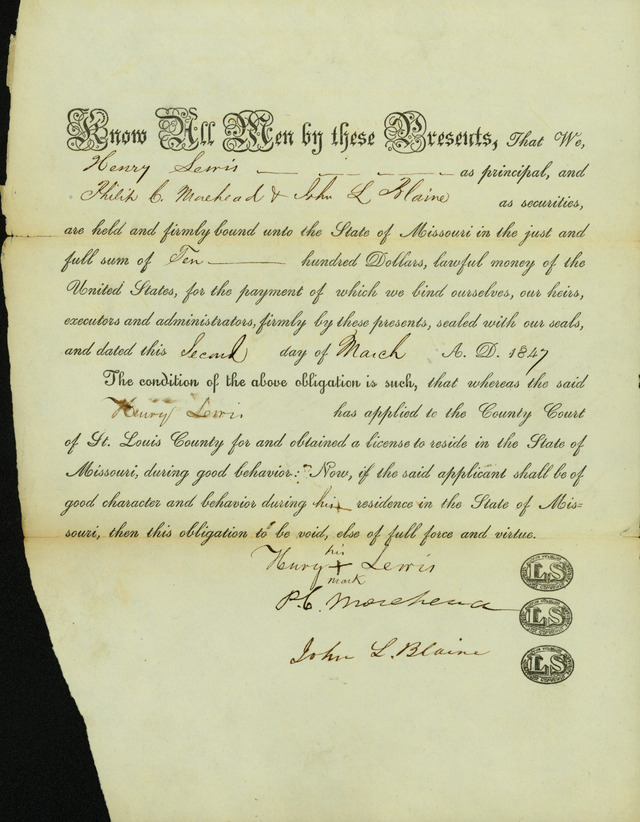 Know All Men by these Presents, That We,
Henry Lewis as principal, and
Philip C. Morehead & John L Blaine as securities,
are held and firmly bound unto the State of Missouri in the just and
full sum of Ten hundred Dollars, lawful money of the
United States, for the payment of which we bind ourselves, our heirs,
executors and administrators, firmly by these presents, sealed with our seals,
and dated this Second day of March A. D. 1847
The condition of the above obligation is such, that whereas the said
Henry Lewis has applied to the County Court
of St. Louis County for and obtained a license to reside in the State of
Missouri, during good behavior: Now, if the said applicant shall be of
good character and behavior during his residence in the State of Mis=
souri, then this obligation to be void, else of full force and virtue.
his
Henry + Lewis
mark
LS
P. C. Morehead
LS
John L. Blaine
LS